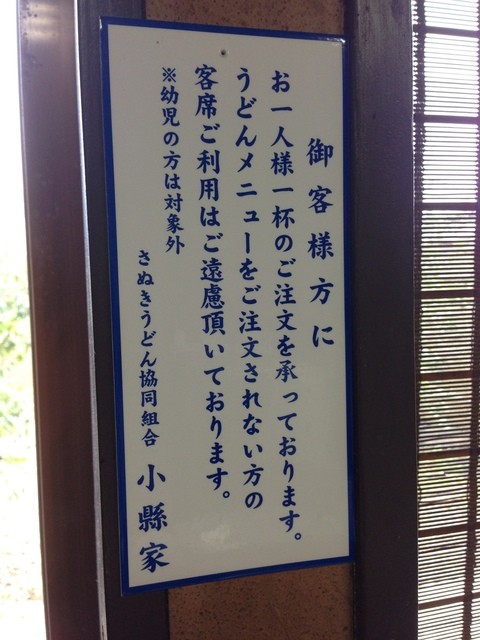 御客様方に
お一人様一杯のご注文を承っております。
うどんメニューをご注文されない方の
客席ご利用はご遠慮頂いております。
※幼児の方は対象外
さぬきうどん協同組合 小縣家